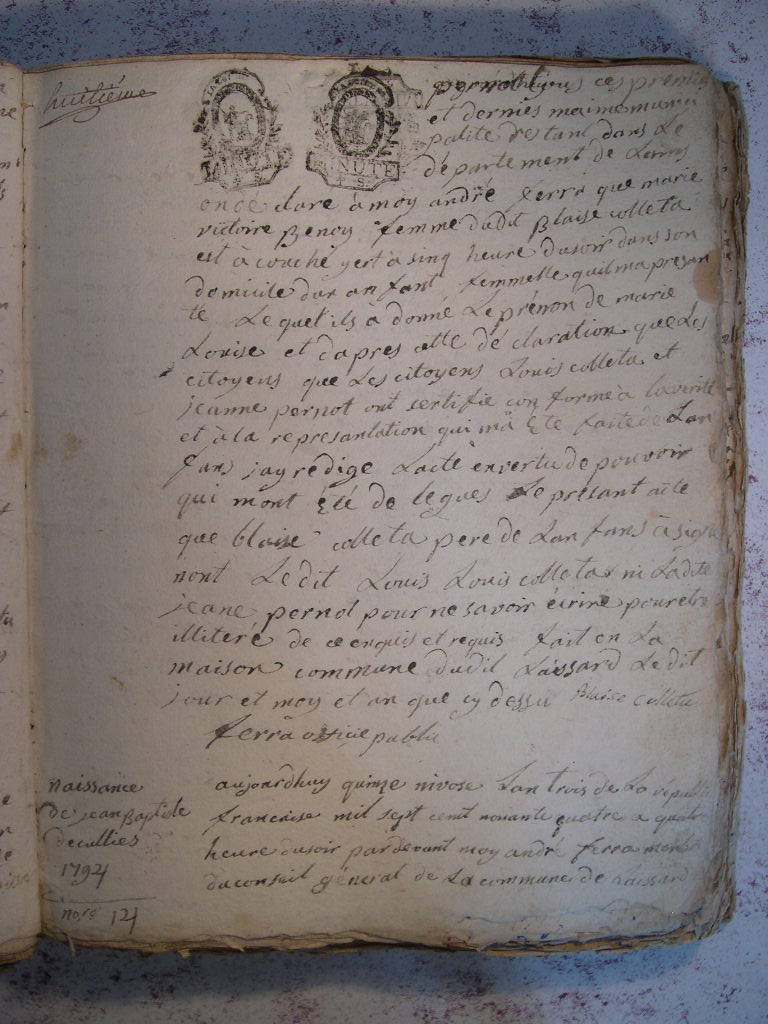 huitiéme
MINUTE
ces premier
et dernies maime muni
palite restant dans Le
département de Lains
onc dare à moy andré ferra que marie
victoire Benoy femme dudit Blaise colleta
est à couché yert à sinq heure du soir dans son
domicile dun anfant femmelle quil ma presan
té Le quel ils à donné Le prénon de marie
Louise et dapres cette dé claration que Les
citoyens que Les citoyens Louis colleta et
jeanne pernot ont sertifie con forme à la vérité
et à la représantation qui mà été faite de Lan
fans jay rédige Lacte en vertu de pouvoir
qui mont été de légues Le présant acte
que blaise colleta pere de Lan fans à signé
nont Le dit Louis Louis colleta ni Ladite
jeane pernot pour ne savoir écrire pour etre
illiteré de ce enquis et requis fait en La
maison commune dudit Laissard Le dit
jour et moy et an que cy dessu Blaise colleta
ferra officie public
naissance
de jean Baptiste
decullies
1794
noro 121
aujourdhuy quinze nivose Lan trois de La républi
francaise mil sept cent nonante quatre a quatre
heure dusoir pardevant moy andré ferra menbre
du conseil général de La commune de Laissard